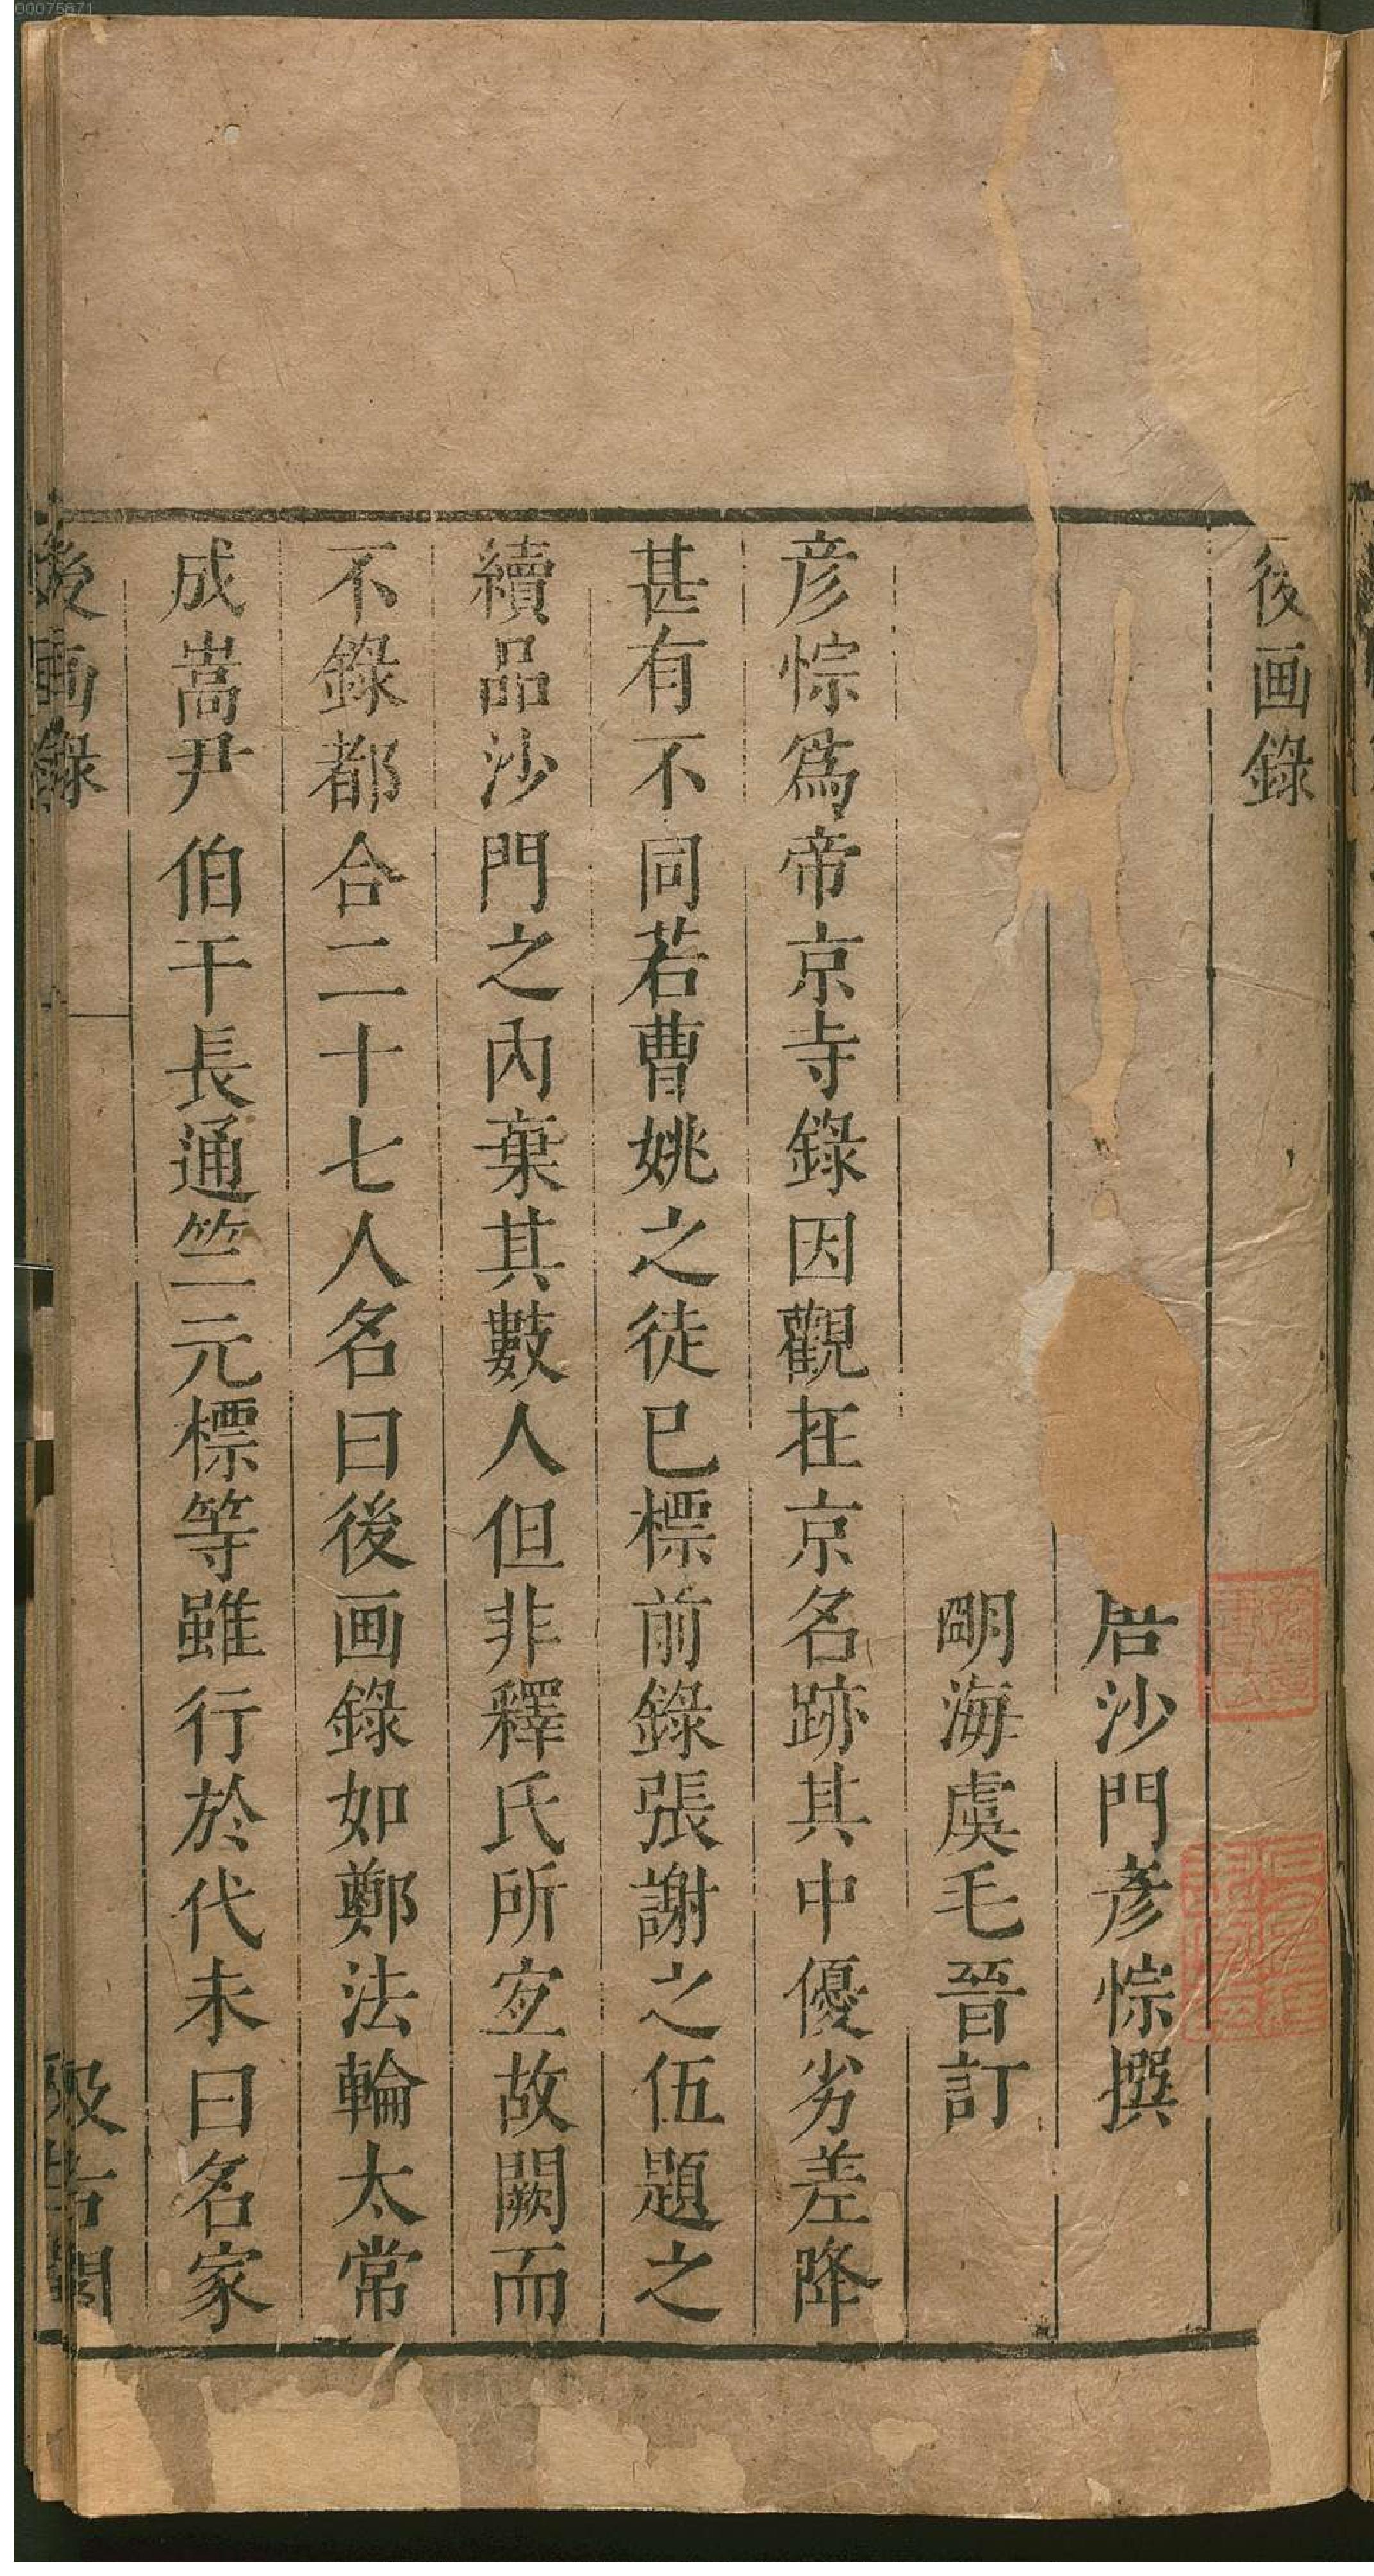 00075871
後画錄
唐沙門彥悰撰
明海虞毛晉訂
彥悰爲帝京寺錄因觀在京名跡其中優劣差降
甚有不同若曹姚之徒已標前錄張謝之伍題之
續品沙門之內棄其數人但非釋氏所宐故闕而
不錄都合二十七人名曰後画錄如鄭法輪太常
成嵩尹伯干長通竺元標等雖行於代未曰名家
後画錄 一 汲古閣